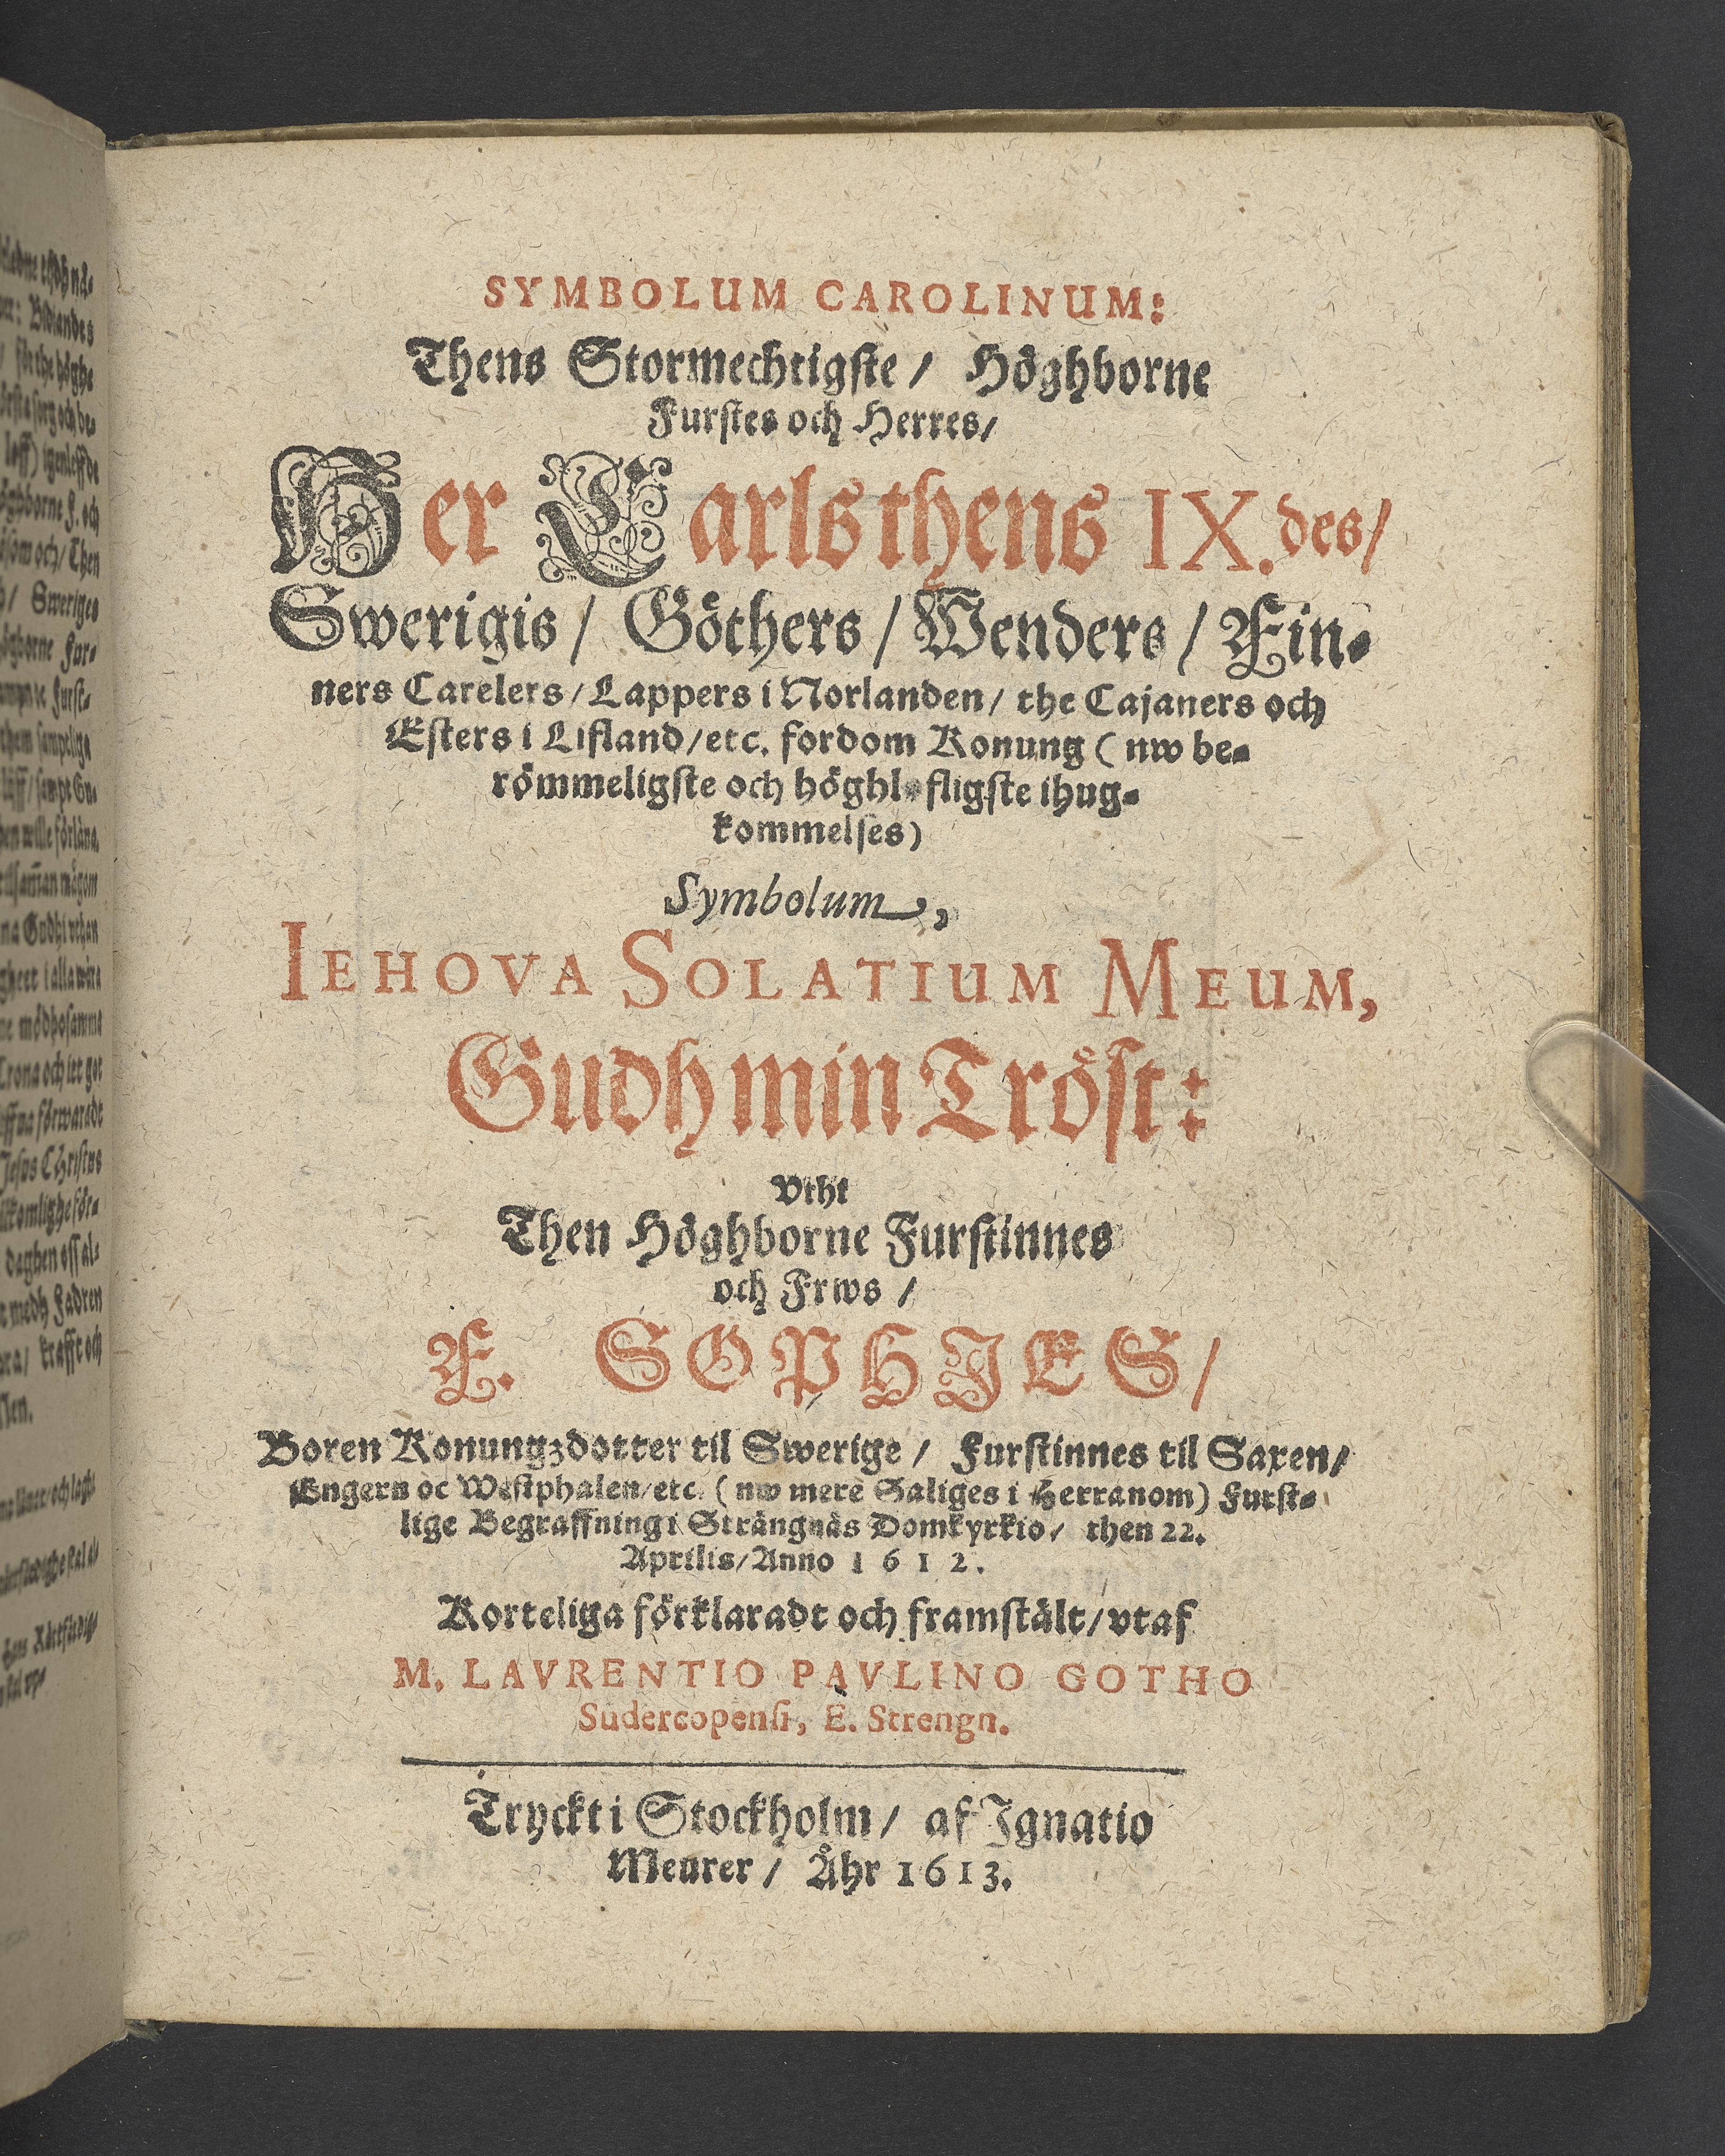 SYMBOLUM CAROLINUM:
Thens Stormechtigste / Höghborne
Furstes och Herres /
Her Carls thens IX. des /
Swerigis / Göthers / Wenders / Fin-
ners Carelers / Lappers i Norlanden / the Cajaners och
Esters i Lifland / etc. fordom Konung ( nw be-
römmeligste och höghl fligste ihug-
kommelses)
Symbolum,
IEHOVA SOLATIUM MEUM,
Gudh min Tröst:
Vtht
Then Höghborne Furstinnes
och Frws /
F. SOPHIES /
Boren Konungzdotter til Swerige / Furstinnes til Saxen /
Engern oc Westphalen / etc. ( nw mere Saliges i Herranom) Furst-
lige Begraffning i Strängnäs Domkyrkio / then 22.
Aprilis / Anno 1612.
Korteliga förklaradt och framstält / vtaf
M. LAVRENTIO PAVLINO GOTHO
Sudercopensi, E. Strengn.
Tryckt i Stockholm / af Ignatio
Meurer / Åhr 1613.